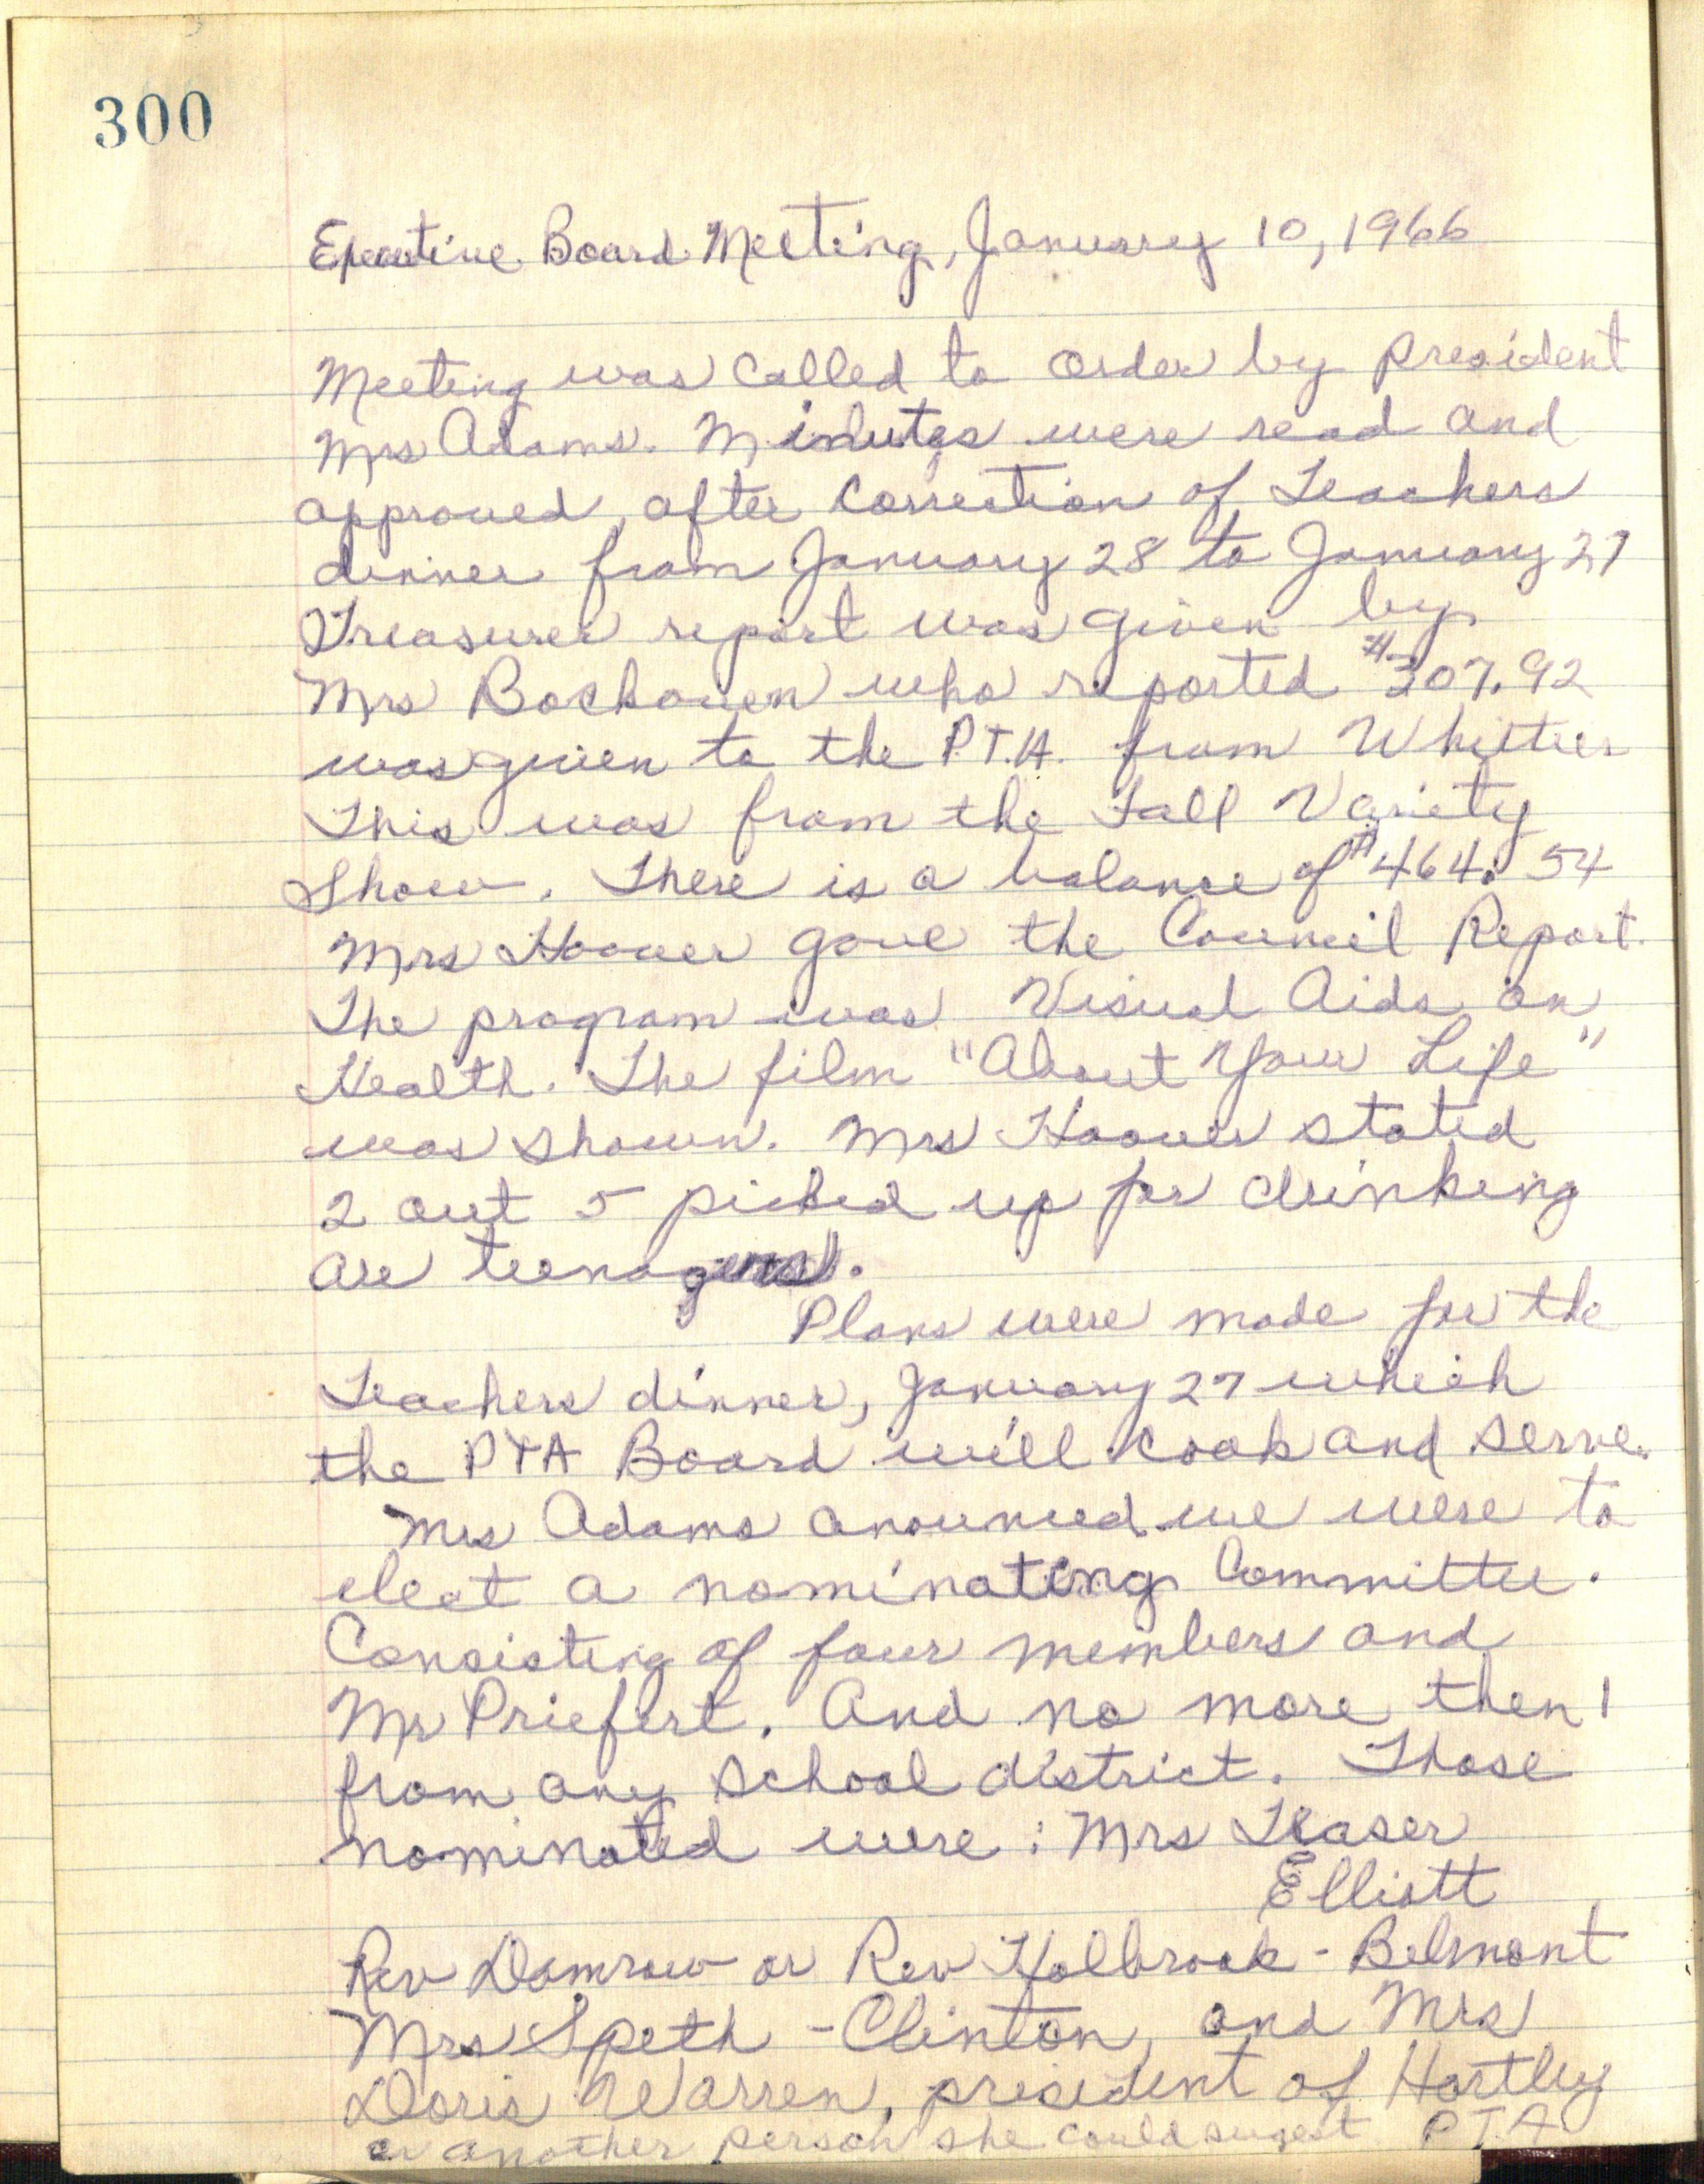 300
Executive Board Meeting, January 10, 1966
Meeting was called to order by president
Mrs Adams. Minutes were read and
approved, after correction of Teachers
dinner from January 28 to January 27
Treasurer report was given by
Mrs Bockoven who reported $307.92
was given to the P.T.A. from Whittier
This was from the Fall Variety
Show. There is a balance of $464.54
Mrs Hoover gave the Council Report.
The program was Visual Aids on
Health. The film "About Your Life"
was shown. Mrs Hoover stated
2 out 5 picked up for drinking
are teenagers.
Plans were made for the
Teachers dinner, January 27 which
the PTA Board will cook and serve.
Mrs Adams anounced we were to
elect a nominating Committee.
Consisting of four members and
Mr Priefert. And no more then 1
from any school district. Those
nominated were: Mrs Teaser
Elliott
Rev Damrow or Rev Holbrook - Belmont
Mrs Speth - Clinton, and Mrs
Doris Warren, president of Hartley
or another person she could sugest P.T.A